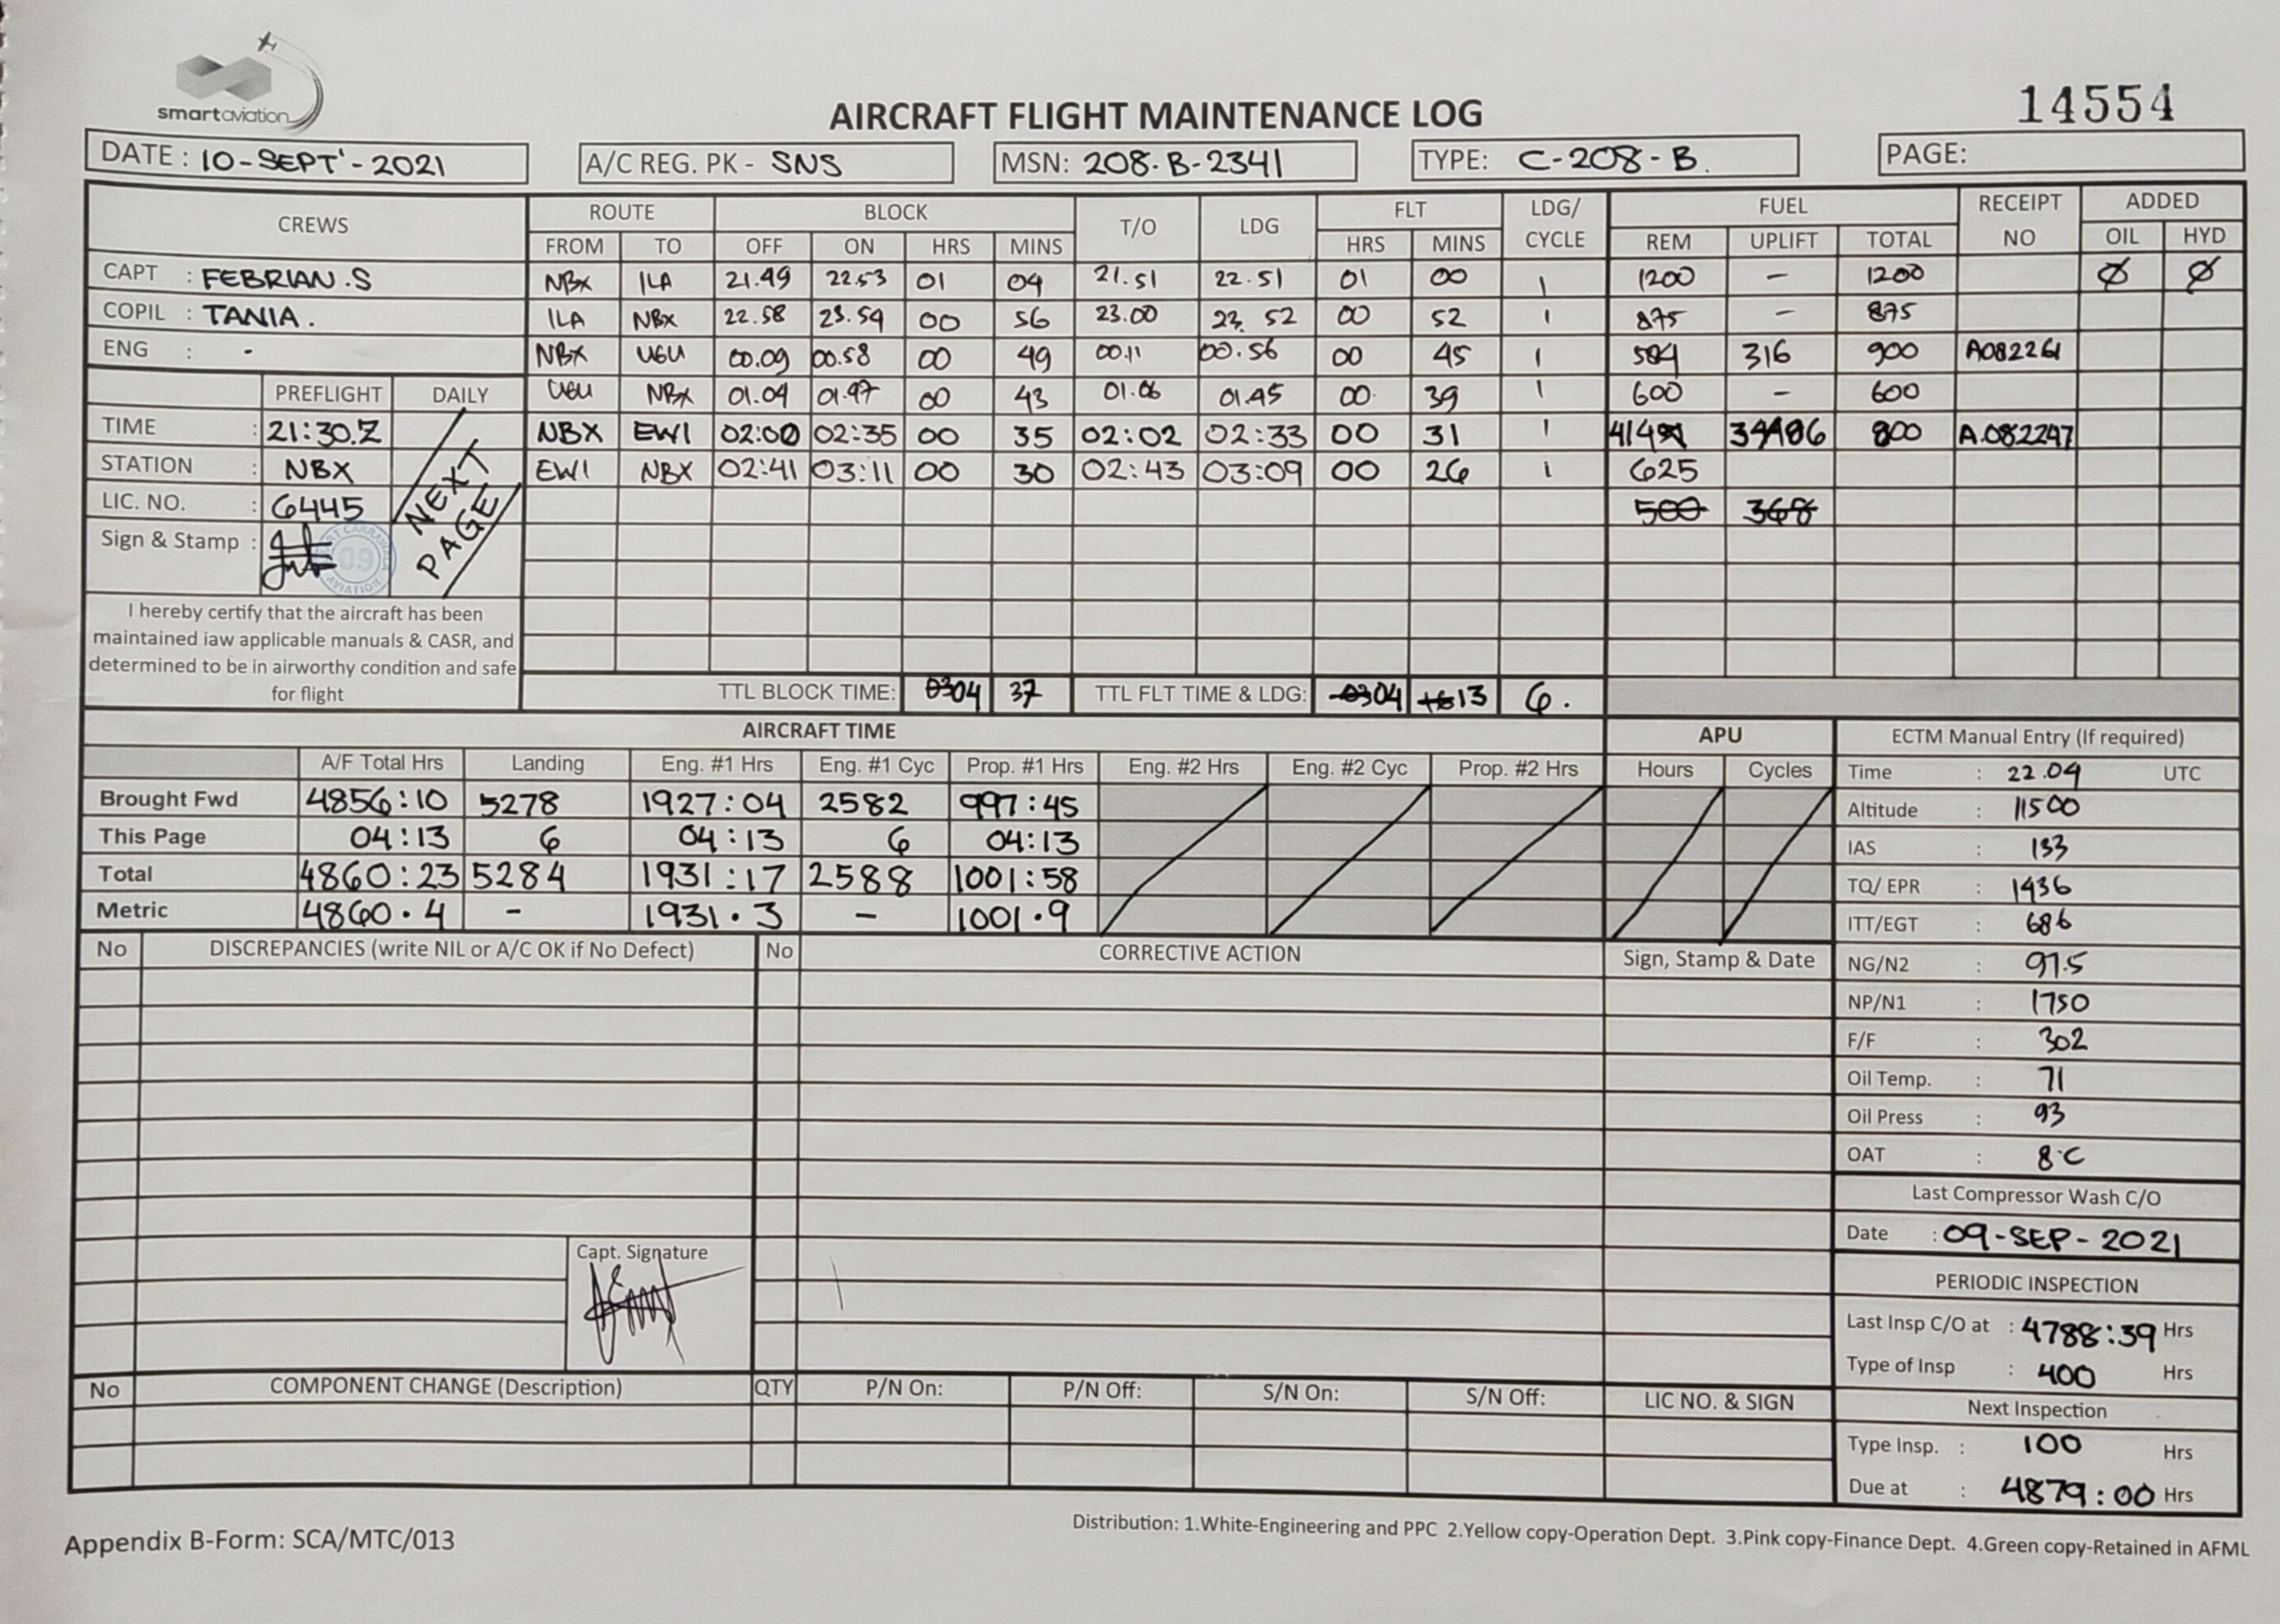 smartaviation
14554
AIRCRAFT FLIGHT MAINTENANCE LOG
DATE : 10-SEPT'-2021 A/C REG. PK - SNS MSN: 208-B-2341 TYPE: C-208-B. PAGE:
CREWS ROUTE BLOCK T/O LDG FLT LDG/ CYCLE FUEL RECEIPT NO ADDED
FROM TO OFF ON HRS MINS HRS MINS REM UPLIFT TOTAL OIL HYD
CAPT : FEBRIAN.S NBX ILA 21.49 22.53 01 04 21.51 22.51 01 00 1 1200 - 1200 Ø Ø
COPIL : TANIA. ILA NBX 22.58 23.54 00 56 23.00 23.52 00 52 1 875 - 875
ENG : - NBX UGU 00.09 00.58 00 49 00.11 00.56 00 45 1 584 316 900 A082261
PREFLIGHT DAILY UGU NBX 01.04 01.47 00 43 01.06 01.45 00 39 1 600 - 600
TIME : 21:30.Z NBX EWI 02:00 02:35 00 35 02:02 02:33 00 31 1 800 A.082247
STATION : NBX EWI NBX 02:41 03:11 00 30 02:43 03:09 00 26 1 625
LIC. NO. : 6445 500 368
NEXT PAGE
Sign & Stamp :
09
AVIATION
I hereby certify that the aircraft has been
maintained iaw applicable manuals & CASR, and
determined to be in airworthy condition and safe
for flight
TTL BLOCK TIME: 03 04 37 TTL FLT TIME & LDG: 03 04 13 6.
AIRCRAFT TIME APU ECTM Manual Entry (If required)
A/F Total Hrs Landing Eng. #1 Hrs Eng. #1 Cyc Prop. #1 Hrs Eng. #2 Hrs Eng. #2 Cyc Prop. #2 Hrs Hours Cycles Time : 22.04 UTC
Brought Fwd 4856:10 5278 1927:04 2582 997:45 Altitude : 11500
This Page 04:13 6 04:13 6 04:13 IAS : 133
Total 4860:23 5284 1931:17 2588 1001:58 TQ/ EPR : 1436
Metric 4860.4 - 1931.3 - 1001.9 ITT/EGT : 686
No DISCREPANCIES (write NIL or A/C OK if No Defect) No CORRECTIVE ACTION Sign, Stamp & Date NG/N2 : 97.5
NP/N1 : 1750
F/F : 302
Oil Temp. : 71
Oil Press : 93
OAT : 8°C
Last Compressor Wash C/O
Date : 09-SEP-2021
Capt. Signature
PERIODIC INSPECTION
Last Insp C/O at : 4788:39 Hrs
Type of Insp : 400 Hrs
No COMPONENT CHANGE (Description) QTY P/N On: P/N Off: S/N On: S/N Off: LIC NO. & SIGN
Next Inspection
Type Insp. : 100 Hrs
Due at : 4879:00 Hrs
Appendix B-Form: SCA/MTC/013
Distribution: 1.White-Engineering and PPC 2.Yellow copy-Operation Dept. 3.Pink copy-Finance Dept. 4.Green copy-Retained in AFML